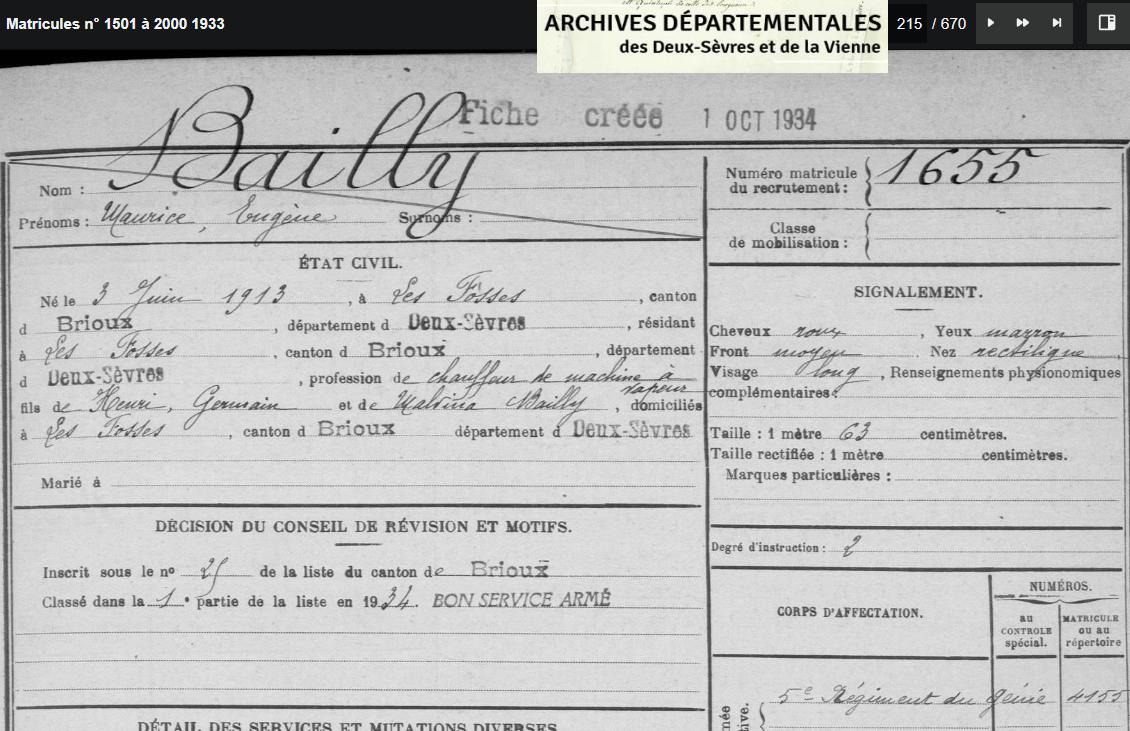 Matricules n° 1501 à 2000 1933
ARCHIVES DÉPARTEMENTALES
des Deux-Sèvres et de la Vienne
215 / 670
Fiche créée 1 OCT 1934
Nom : Bailly
Prénoms : Maurice, Eugène Surnoms :
Numéro matricule du recrutement : 1655
Classe de mobilisation :
ÉTAT CIVIL.
Né le 3 Juin 1913, à Les Fosses, canton
d Brioux, département d Deux-Sèvres, résidant
à Les Fosses, canton d Brioux, département
d Deux-Sèvres, profession de chauffeur de machine à vapeur
fils de Henri, Germain et de Maldina Bailly, domiciliés
à Les Fosses, canton d Brioux département d Deux-Sèvres
Marié à
SIGNALEMENT.
Cheveux roux, Yeux marron
Front moyen Nez rectiligne
Visage long, Renseignements physionomiques
complémentaires :
Taille : 1 mètre 63 centimètres.
Taille rectifiée : 1 mètre centimètres.
Marques particulières :
Degré d'instruction : 2
DÉCISION DU CONSEIL DE RÉVISION ET MOTIFS.
Inscrit sous le nº 25 de la liste du canton de Brioux
Classé dans la 1e partie de la liste en 1934. BON SERVICE ARMÉ
CORPS D'AFFECTATION.
NUMÉROS.
au CONTROLE spécial.
MATRICULE ou au répertoire
5e Régiment du génie 4155
DÉTAIL DES SERVICES ET MUTATIONS DIVERSES